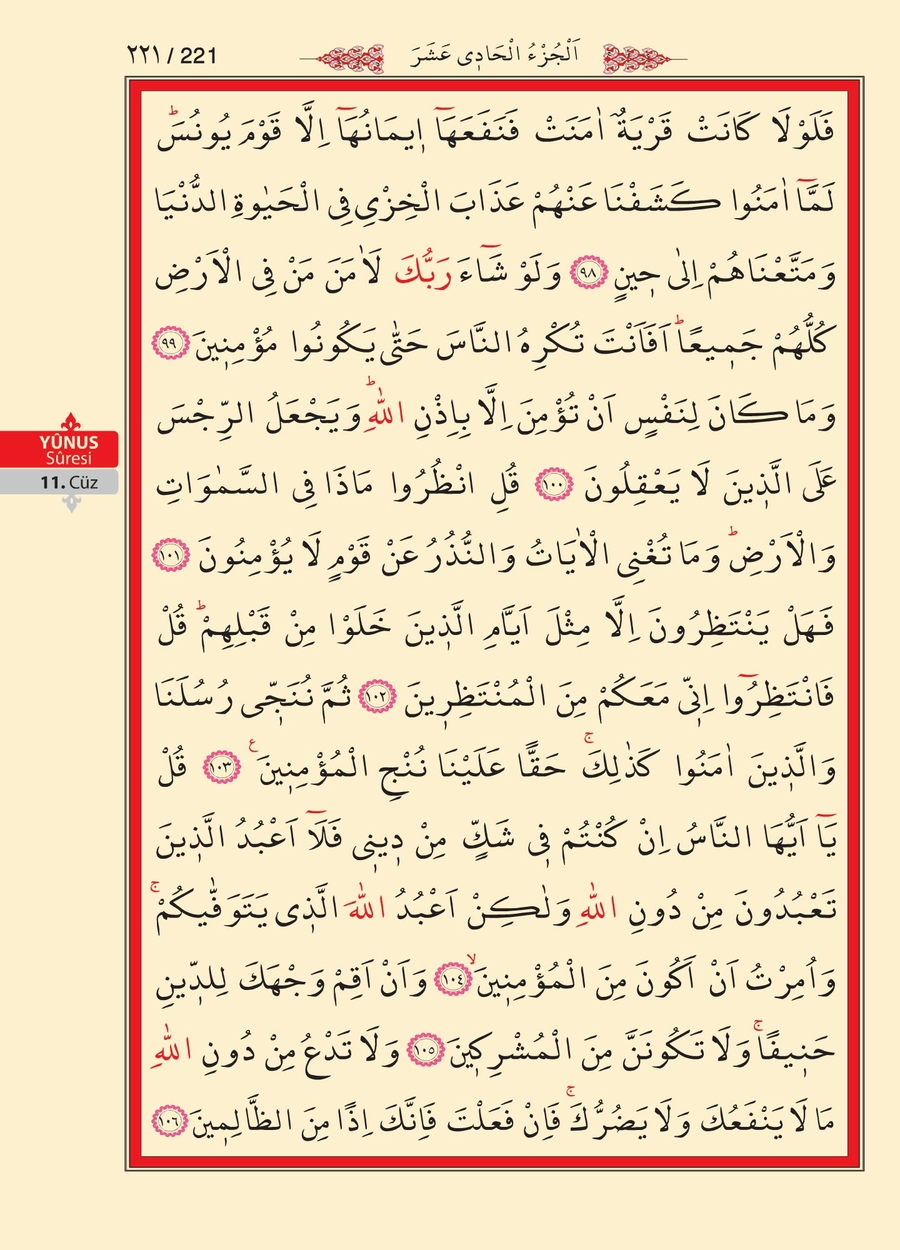 ٢٢١ / 221
اَلْجُزْءُ الْحَادِي عَشَرَ
فَلَوْلَا كَانَتْ قَرْيَةٌ اٰمَنَتْ فَنَفَعَهَٓا ا۪يمَانُهَٓا اِلَّا قَوْمَ يُونُسَۜ
لَمَّٓا اٰمَنُوا كَشَفْنَا عَنْهُمْ عَذَابَ الْخِزْيِ فِي الْحَيٰوةِ الدُّنْيَا
وَمَتَّعْنَاهُمْ اِلٰى ح۪ينٍ ﴿٩٨﴾ وَلَوْ شَٓاءَ رَبُّكَ لَاٰمَنَ مَنْ فِي الْاَرْضِ
كُلُّهُمْ جَم۪يعًاۜ اَفَاَنْتَ تُكْرِهُ النَّاسَ حَتّٰى يَكُونُوا مُؤْمِن۪ينَ ﴿٩٩﴾
وَمَا كَانَ لِنَفْسٍ اَنْ تُؤْمِنَ اِلَّا بِاِذْنِ اللّٰهِۜ وَيَجْعَلُ الرِّجْسَ
عَلَى الَّذ۪ينَ لَا يَعْقِلُونَ ﴿١٠٠﴾ قُلِ انْظُرُوا مَاذَا فِي السَّمٰوَاتِ
وَالْاَرْضِۜ وَمَا تُغْنِي الْاٰيَاتُ وَالنُّذُرُ عَنْ قَوْمٍ لَا يُؤْمِنُونَ ﴿١٠١﴾
فَهَلْ يَنْتَظِرُونَ اِلَّا مِثْلَ اَيَّامِ الَّذ۪ينَ خَلَوْا مِنْ قَبْلِهِمْۜ قُلْ
فَانْتَظِرُٓوا اِنّ۪ي مَعَكُمْ مِنَ الْمُنْتَظِر۪ينَ ﴿١٠٢﴾ ثُمَّ نُنَجّ۪ي رُسُلَنَا
وَالَّذ۪ينَ اٰمَنُوا كَذٰلِكَۚ حَقًّا عَلَيْنَا نُنْجِ الْمُؤْمِن۪ينَ ع ﴿١٠٣﴾ قُلْ
يَٓا اَيُّهَا النَّاسُ اِنْ كُنْتُمْ ف۪ي شَكٍّ مِنْ د۪ين۪ي فَلَٓا اَعْبُدُ الَّذ۪ينَ
تَعْبُدُونَ مِنْ دُونِ اللّٰهِ وَلٰكِنْ اَعْبُدُ اللّٰهَ الَّذ۪ي يَتَوَفّٰيكُمْۚ
وَاُمِرْتُ اَنْ اَكُونَ مِنَ الْمُؤْمِن۪ينَۙ ﴿١٠٤﴾ وَاَنْ اَقِمْ وَجْهَكَ لِلدّ۪ينِ
حَن۪يفًاۚ وَلَا تَكُونَنَّ مِنَ الْمُشْرِك۪ينَ ﴿١٠٥﴾ وَلَا تَدْعُ مِنْ دُونِ اللّٰهِ
مَا لَا يَنْفَعُكَ وَلَا يَضُرُّكَۚ فَاِنْ فَعَلْتَ فَاِنَّكَ اِذًا مِنَ الظَّالِم۪ينَ ﴿١٠٦﴾
YÛNUS
Sûresi
11. Cüz